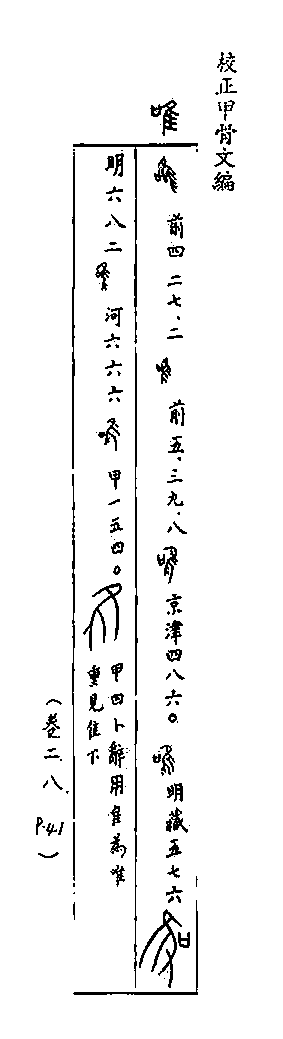 校正甲骨文編
唯
前四二七、二 前五、三九、八 京津四八六〇 明藏五七六
明六八二 河六六六 甲一五四〇 甲四卜辭用隹為唯
重見隹下
(卷二、八、P.41)